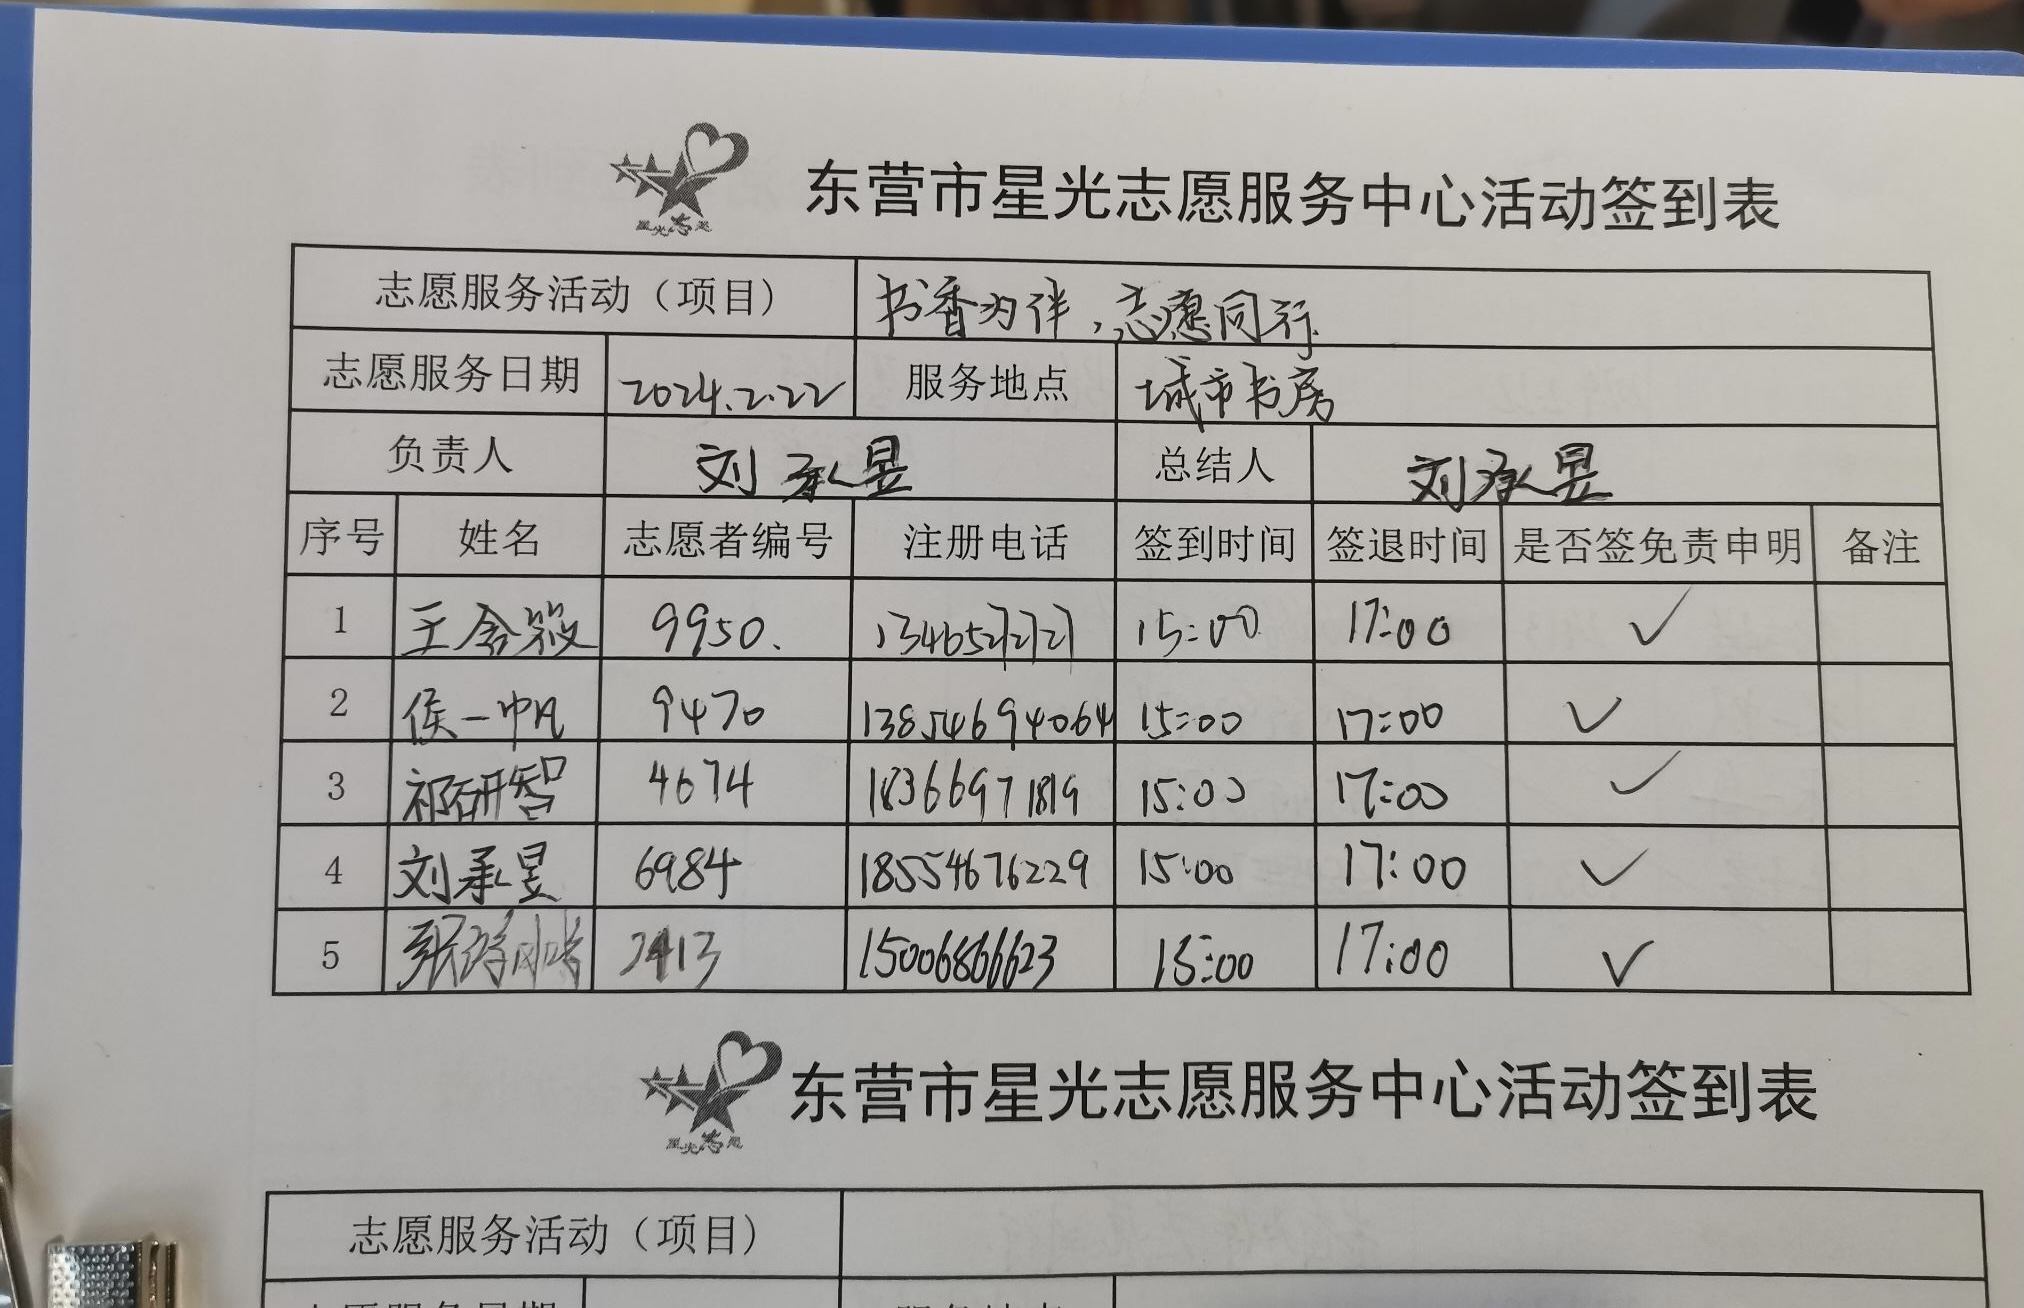 星光志愿
东营市星光志愿服务中心活动签到表
志愿服务活动（项目） 书香为伴，志愿同行
志愿服务日期 2024.2.22 服务地点 城市书房
负责人 刘承昱 总结人 刘承昱
序号 姓名 志愿者编号 注册电话 签到时间 签退时间 是否签免责申明 备注
1 王 9950. 15:00 17:00 ✓
2 侯一帆 9470 13854694064 15:00 17:00 ✓
3 祁研智 4674 18366971819 15:00 17:00 ✓
4 刘承昱 6984 18554676229 15:00 17:00 ✓
5 张 2413 15006866623 15:00 17:00 ✓
星光志愿
东营市星光志愿服务中心活动签到表
志愿服务活动（项目）